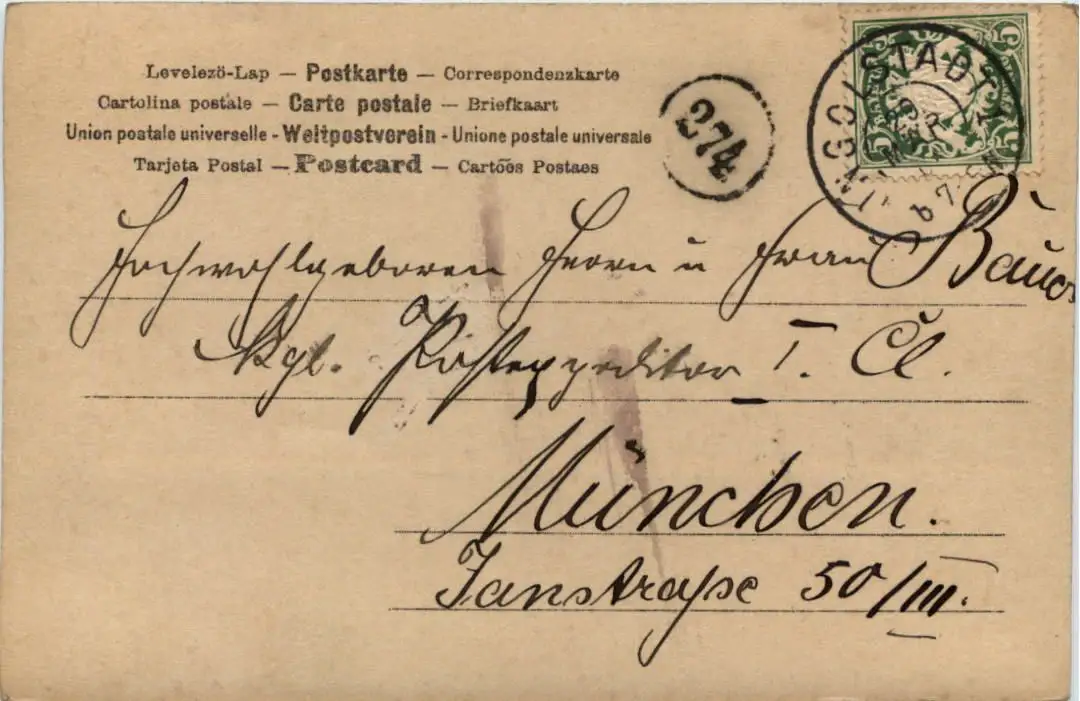 Levelezö-Lap — Postkarte — Correspondenzkarte
Cartolina postale — Carte postale — Briefkaart
Union postale universelle - Weltpostverein - Unione postale universale
Tarjeta Postal — Postcard — Cartões Postaes
274
INGOLSTADT
5 5
Hochwohlgeboren Herrn u Frau Bauer
Kgl. Postexpeditor I. Cl.
München.
Janstraße 50/III.